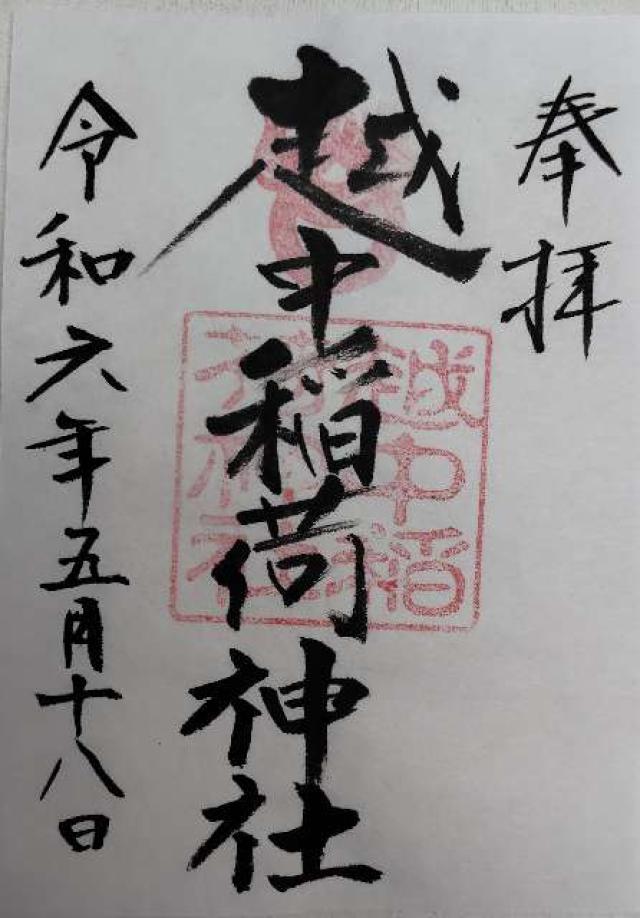 奉拝
越中稲荷神社
越中稲荷神社
令和六年五月十八日